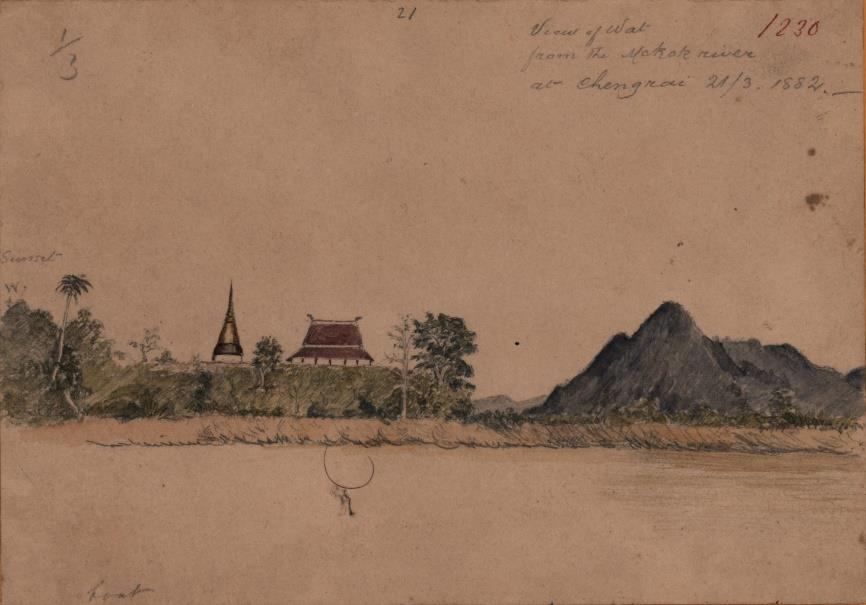 21
1/3
1230
View of Wat
from the Mekok river
at Chengrai 21/3. 1882.
Sunset
W.
boat